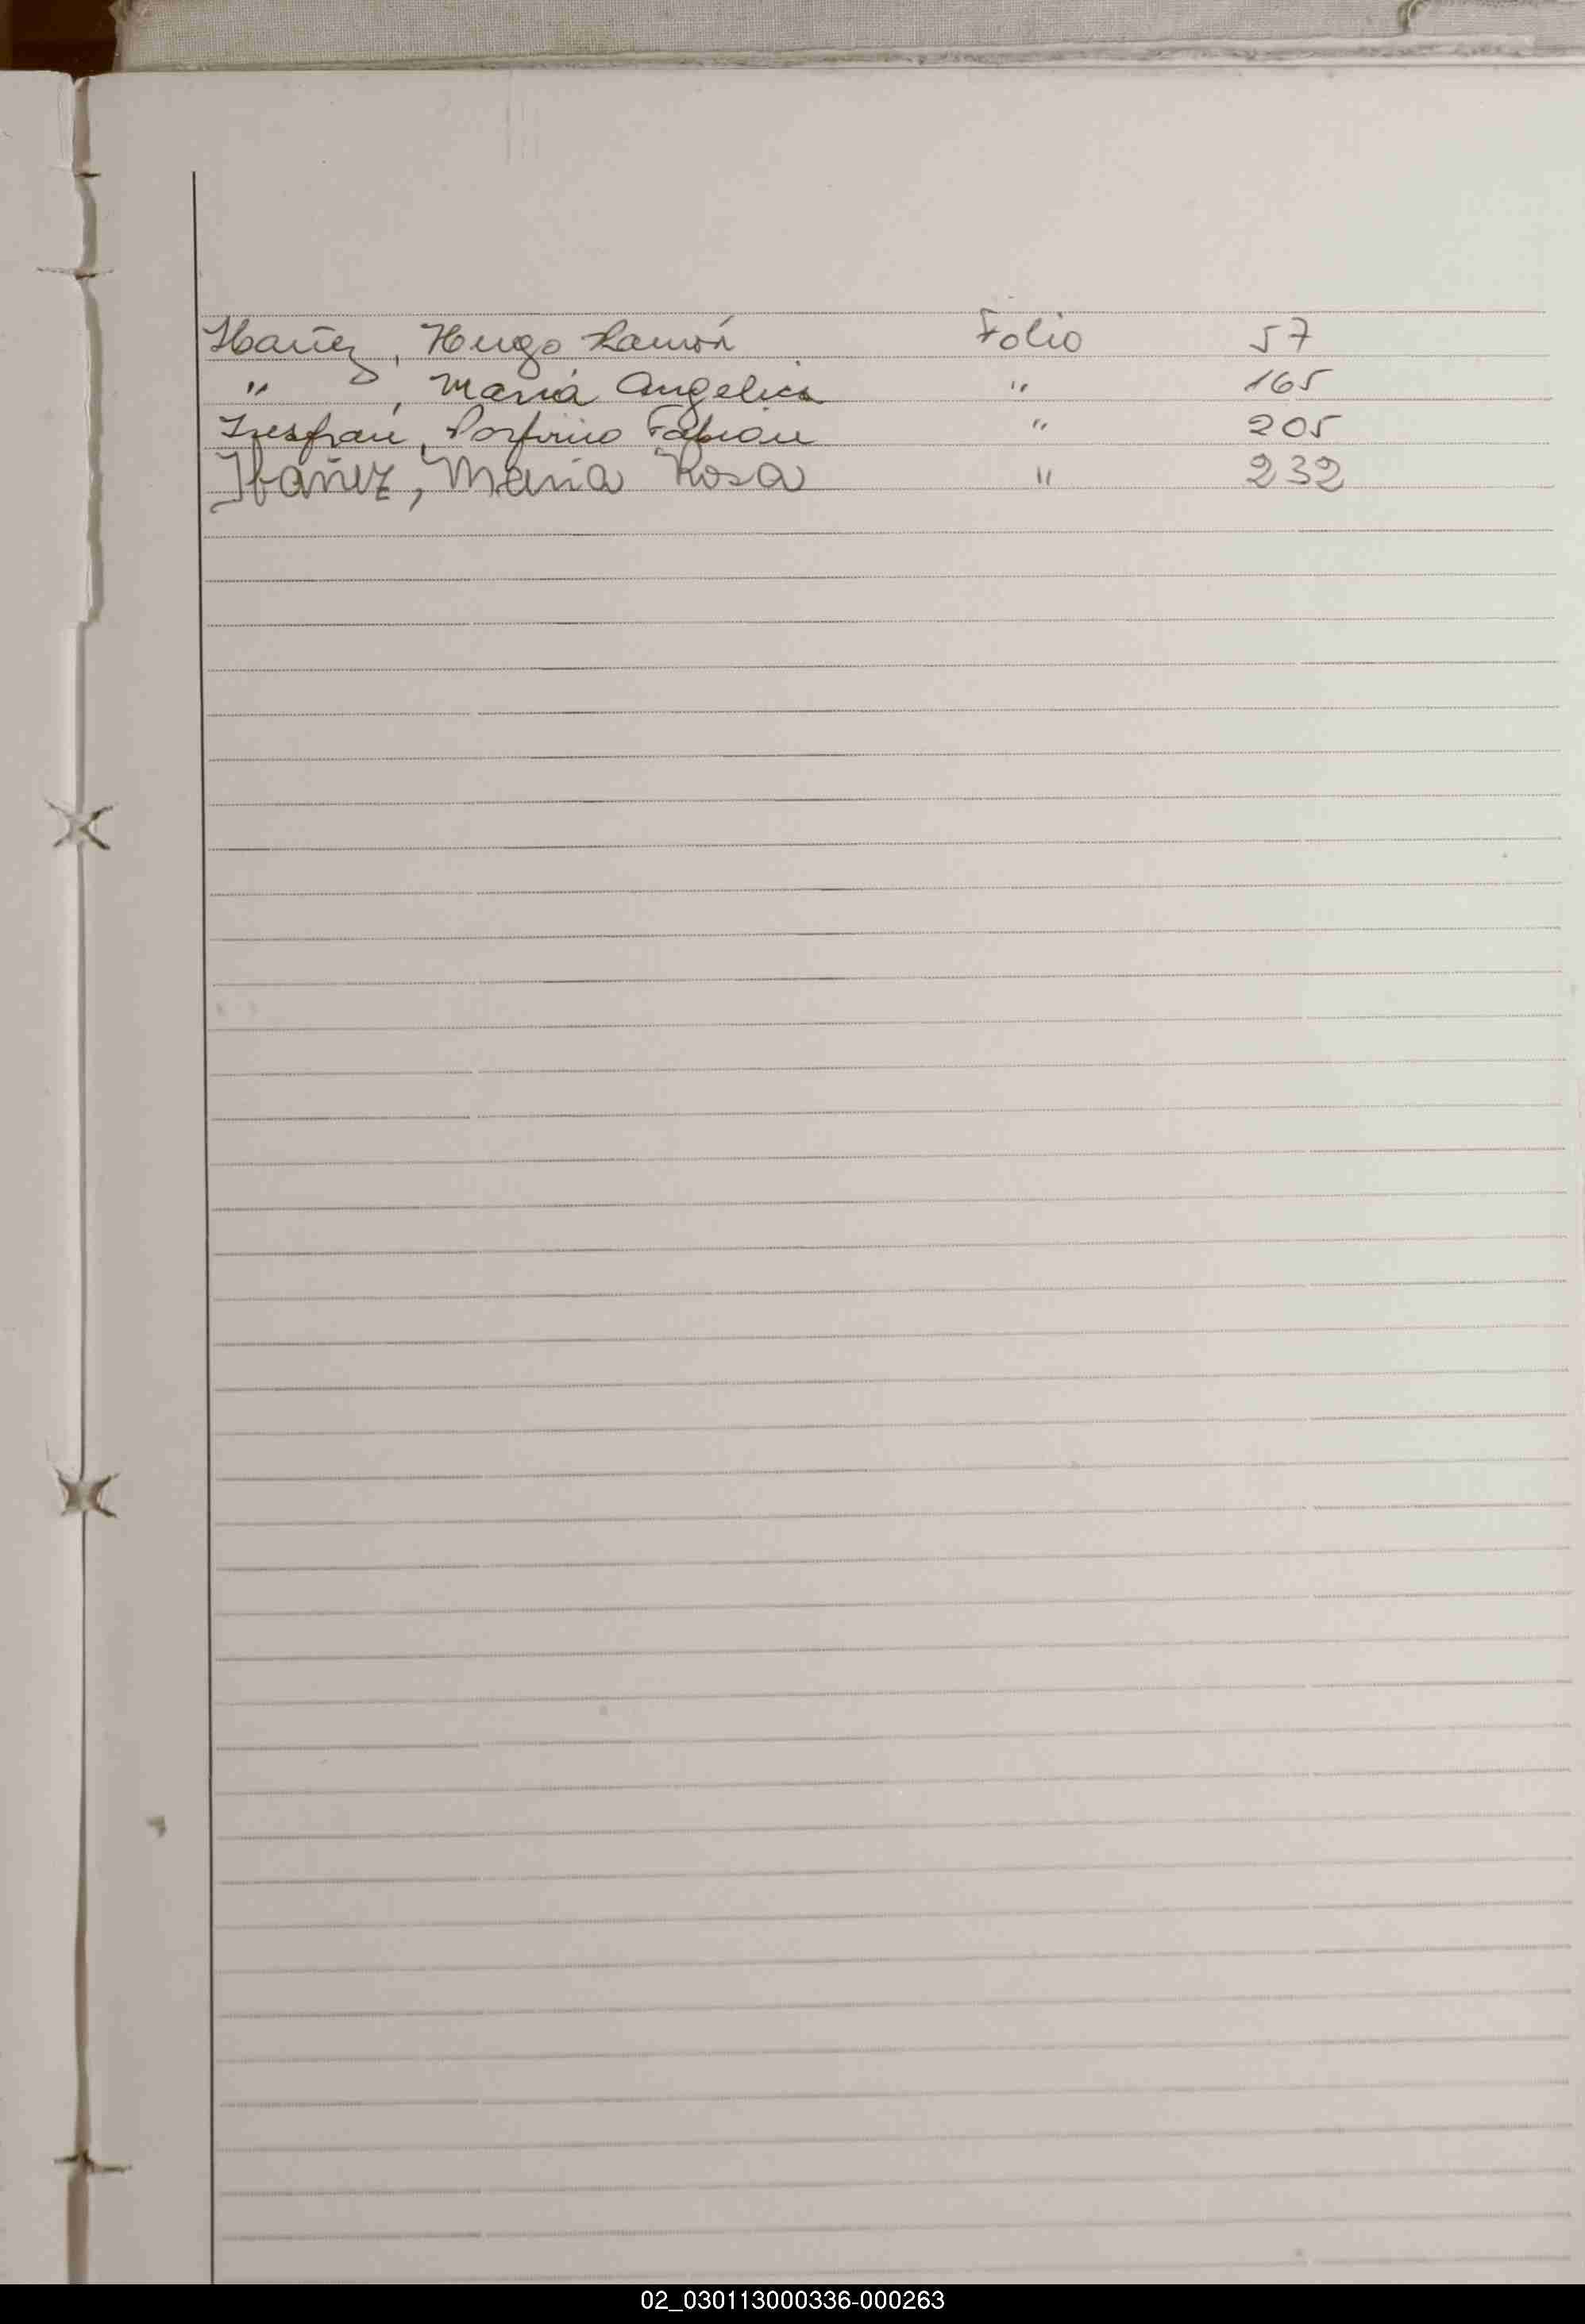 Ibañez, Hugo Ramón Folio 57
" , María Angelica " 165
Porfirio Fabian " 205
Ibañez, María Rosa " 232
02_030113000336-000263